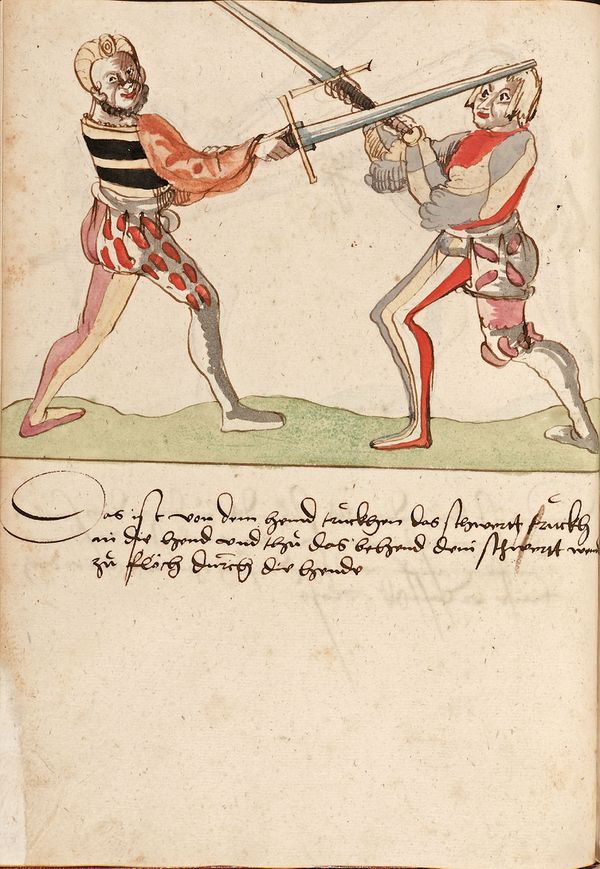 Das ist von dem hend truckhen das schwertt truckh
in die hend und thu das behend dein schwertt wend
zu flöch durch die hende